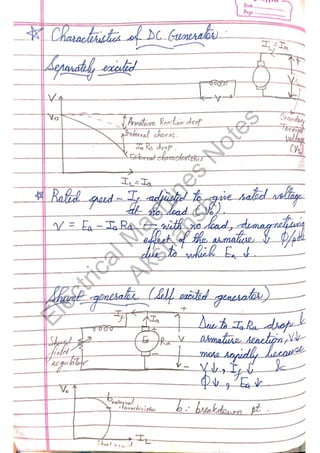 Date
Page
* Characteristics of DC Generator:
Separately excited
IL = Ia
+
V
-
V
V0
Armature Reaction drop
Internal charac.
IaRa drop.
External characteristics
IL = Ia
Terminal
voltage
* Rated speed - If adjusted to give rated voltage
at no load (V0).
V = EA - IARA → with no load, demagnetising
effect of the armature ↓ Φ/pole
due to which EA ↓.
Shunt generator (Self excited generator)
If
IL
Ia
E
Ra
V
+
-
Shunt
field
regulator
Due to IaRa drop &
armature reaction, V↓
more rapidly because
V↓, If ↓ &
Φ↓, EA ↓.
V0
b
external
characteristics
b: breakdown pt.
IL
Electrical Machines Notes